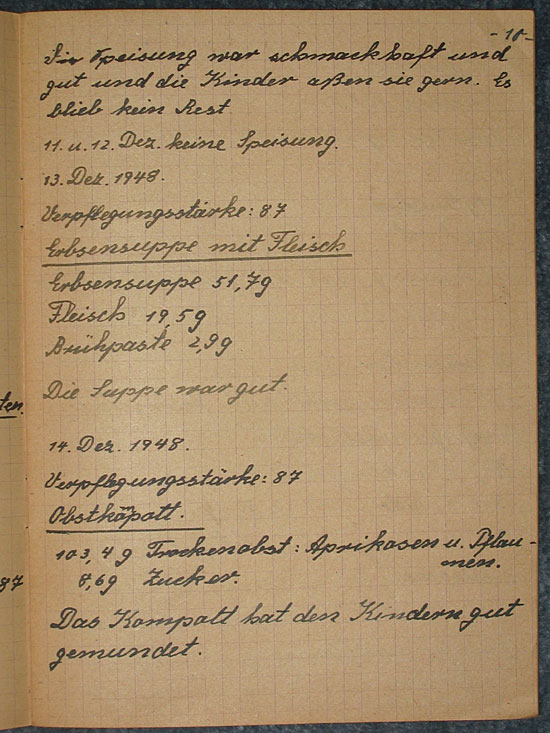 - 10 -
Die Speisung war schmackhaft und
gut und die Kinder aßen sie gern. Es
blieb kein Rest
11. u. 12. Dez. keine Speisung.
13. Dez. 1948.
Verpflegungsstärke: 87
Erbsensuppe mit Fleisch
Erbsensuppe 51,7g
Fleisch 19,5g
Brühpaste 2,9g
Die Suppe war gut.
ten.
14. Dez. 1948.
Verpflegungsstärke: 87
Obstkõpott.
103,4 g Trockenobst: Aprikosen u. Pflau-
men.
87
8,6g Zucker.
Das Kompott hat den Kindern gut
gemundet.